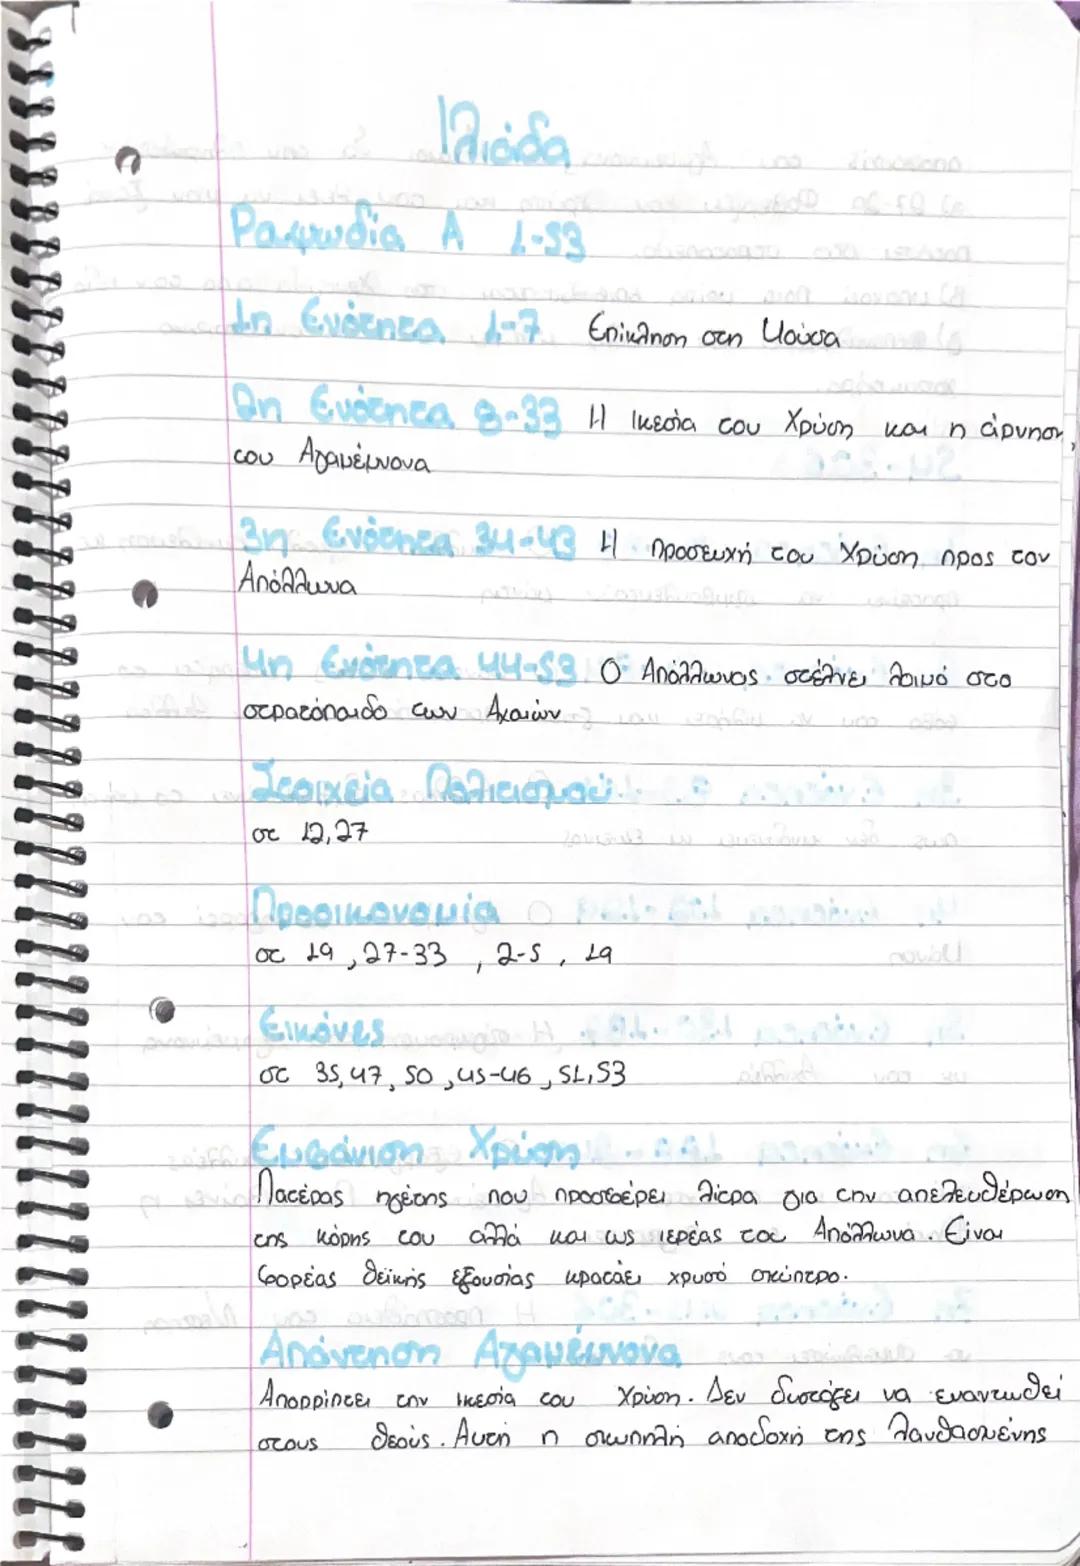 Ιλιάδα
Ραψωδία Α 1-53
1η Ενότητα 1-7 Επίκληση στη Μούσα
2η Ενότητα 8-33 Η Ικεσία του Χρύση και η άρνηση
του Αγαμέμνονα
3η Ενότητα 34-43 Η προσευχή του Χρύση προς τον
Απόλλωνα
4η Ενότητα 44-53 Ο Απόλλωνας στέλνει λοιμό στο
στρατόπαιδο των Αχαιών
Στοιχεία Πολιτισμού
στ 12,27
Προοικονομία
στ 19, 27-33, 2-5, 19
Εικόνες
στ 35, 47, 50, 45-46, 51, 53
Εμφάνιση Χρύση
Πατέρας ηγέτης που προσφέρει λίτρα για την απελευθέρωση
της κόρης του αλλά και ως ιερέας του Απόλλωνα. Είναι
φορέας θεϊκής εξουσίας κρατάει χρυσό σκήπτρο.
Απάντηση Αγαμέμνονα
Απορρίπτει την ικεσία του Χρύση. Δεν διστάζει να εναντιωθεί
στους θεούς. Αυτή η σιωπηλή αποδοχή της λανθασμένης